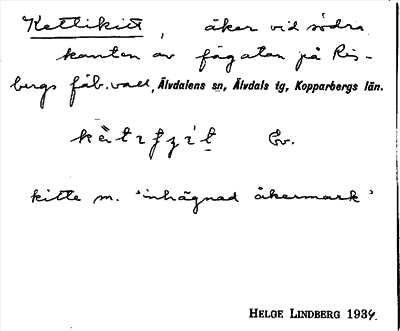 Kettlikitt, åker vid södra
kanten av fägatan på Ris-
bergs fäb.vall, Älvdalens sn, Älvdals tg, Kopparbergs län.
Ev.
kitte m. 'inhägnad åkermark'
HELGE LINDBERG 1934.